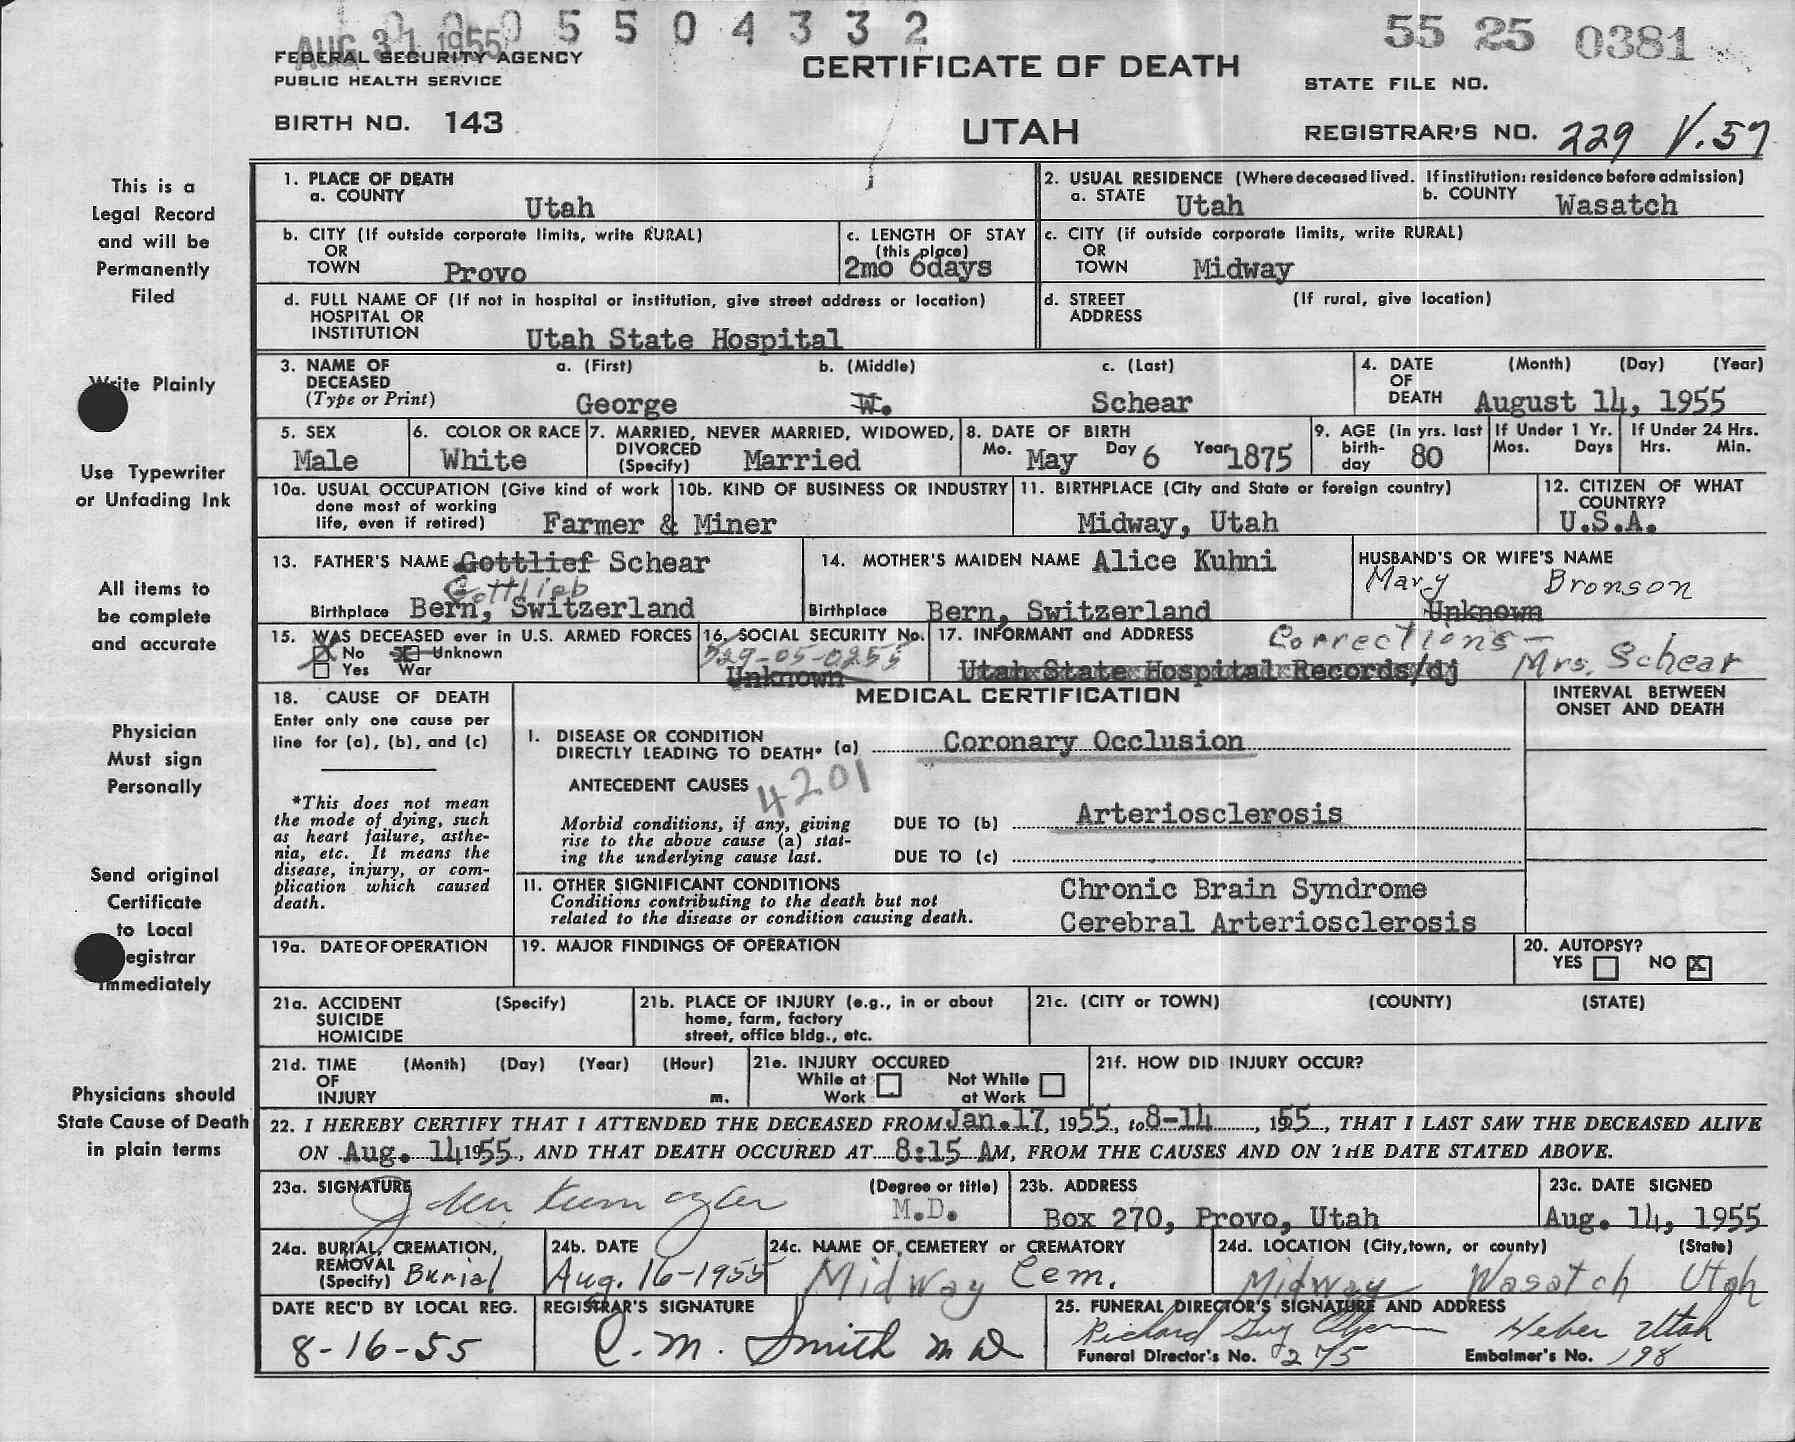 0005504332
AUG 31 1955
55 25 0381
FEDERAL SECURITY AGENCY
PUBLIC HEALTH SERVICE
CERTIFICATE OF DEATH
STATE FILE NO.
BIRTH NO. 143
UTAH
REGISTRAR'S NO. 229 V.57
This is a
Legal Record
and will be
Permanently
Filed
1. PLACE OF DEATH
a. COUNTY
Utah
2. USUAL RESIDENCE (Where deceased lived. If institution: residence before admission)
a. STATE Utah b. COUNTY Wasatch
b. CITY (If outside corporate limits, write RURAL)
OR
TOWN Provo
c. LENGTH OF STAY
(this place)
2mo 6days
c. CITY (if outside corporate limits, write RURAL)
OR
TOWN Midway
d. FULL NAME OF (If not in hospital or institution, give street address or location)
HOSPITAL OR
INSTITUTION Utah State Hospital
d. STREET (If rural, give location)
ADDRESS
Write Plainly
3. NAME OF a. (First) b. (Middle) c. (Last)
DECEASED
(Type or Print) George W. Schear
4. DATE (Month) (Day) (Year)
OF
DEATH August 14, 1955
Use Typewriter
or Unfading Ink
5. SEX
Male
6. COLOR OR RACE
White
7. MARRIED, NEVER MARRIED, WIDOWED,
DIVORCED
(Specify) Married
8. DATE OF BIRTH
Mo. May Day 6 Year 1875
9. AGE (in yrs. last
birth-
day 80
If Under 1 Yr.
Mos. Days
If Under 24 Hrs.
Hrs. Min.
10a. USUAL OCCUPATION (Give kind of work
done most of working
life, even if retired) Farmer & Miner
10b. KIND OF BUSINESS OR INDUSTRY
11. BIRTHPLACE (City and State or foreign country)
Midway, Utah
12. CITIZEN OF WHAT
COUNTRY?
U.S.A.
All items to
be complete
and accurate
13. FATHER'S NAME Gottlief Schear
Gottlieb
Birthplace Bern, Switzerland
14. MOTHER'S MAIDEN NAME Alice Kuhni
Birthplace Bern, Switzerland
HUSBAND'S OR WIFE'S NAME
Mary Bronson
Unknown
15. WAS DECEASED ever in U.S. ARMED FORCES
No Unknown
Yes War
16. SOCIAL SECURITY No.
529-05-0255
Unknown
17. INFORMANT and ADDRESS Corrections —
Utah State Hospital Records/dj Mrs. Schear
Physician
Must sign
Personally
18. CAUSE OF DEATH
Enter only one cause per
line for (a), (b), and (c)
*This does not mean
the mode of dying, such
as heart failure, asthe-
nia, etc. It means the
disease, injury, or com-
plication which caused
death.
MEDICAL CERTIFICATION
INTERVAL BETWEEN
ONSET AND DEATH
I. DISEASE OR CONDITION
DIRECTLY LEADING TO DEATH* (a) Coronary Occlusion
ANTECEDENT CAUSES 4201
Morbid conditions, if any, giving
rise to the above cause (a) stat-
ing the underlying cause last.
DUE TO (b) Arteriosclerosis
DUE TO (c)
II. OTHER SIGNIFICANT CONDITIONS
Conditions contributing to the death but not
related to the disease or condition causing death.
Chronic Brain Syndrome
Cerebral Arteriosclerosis
Send original
Certificate
to Local
egistrar
Immediately
19a. DATE OF OPERATION
19. MAJOR FINDINGS OF OPERATION
20. AUTOPSY?
YES NO X
21a. ACCIDENT (Specify)
SUICIDE
HOMICIDE
21b. PLACE OF INJURY (e.g., in or about
home, farm, factory
street, office bldg., etc.
21c. (CITY or TOWN) (COUNTY) (STATE)
21d. TIME (Month) (Day) (Year) (Hour)
OF
INJURY m.
21e. INJURY OCCURED
While at Not While
Work at Work
21f. HOW DID INJURY OCCUR?
Physicians should
State Cause of Death
in plain terms
22. I HEREBY CERTIFY THAT I ATTENDED THE DECEASED FROM Jan. 17, 1955, to 8-14, 1955, THAT I LAST SAW THE DECEASED ALIVE
ON Aug. 14 1955, AND THAT DEATH OCCURED AT 8:15 AM, FROM THE CAUSES AND ON THE DATE STATED ABOVE.
23a. SIGNATURE (Degree or title)
M.D.
23b. ADDRESS
Box 270, Provo, Utah
23c. DATE SIGNED
Aug. 14, 1955
24a. BURIAL, CREMATION,
REMOVAL
(Specify) Burial
24b. DATE
Aug. 16-1955
24c. NAME OF CEMETERY or CREMATORY
Midway Cem.
24d. LOCATION (City, town, or county) (State)
Midway Wasatch Utah
DATE REC'D BY LOCAL REG.
8-16-55
REGISTRAR'S SIGNATURE
C. M. Smith MD
25. FUNERAL DIRECTOR'S SIGNATURE AND ADDRESS
Richard Guy Heber Utah
Funeral Director's No. 275 Embalmer's No. 198